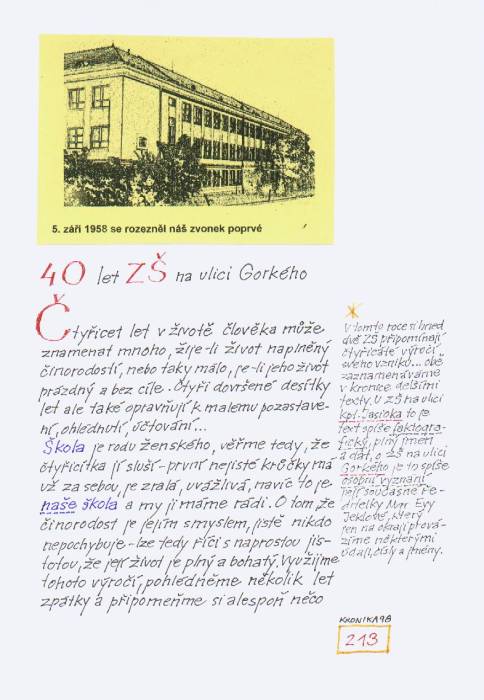 5. září 1958 se rozezněl náš zvonek poprvé
40 let ZŠ na ulici Gorkého
Čtyřicet let v životě člověka může
znamenat mnoho, žije-li život naplněný
činorodostí, nebo taky málo, je-li jeho život
prázdný a bez cíle. Čtyři dovršené desítky
let ale také opravňují k malému pozastave-
ní, ohlédnutí, účtování...
Škola je rodu ženského, věřme tedy, že
čtyřicítka jí sluší - první nejisté krůčky má
už za sebou, je zralá, uvážlivá, navíc to je
naše škola a my ji máme rádi. O tom, že
činorodost je jejím smyslem, jistě nikdo
nepochybuje - lze tedy říci s naprostou jis-
totou, že její život je plný a bohatý. Využijme
tohoto výročí, pohlédněme několik let
zpátky a připomeňme si alespoň něco
V tomto roce si hned
dvě ZŠ připomínají
čtyřicáté výročí
svého vzniku... obě
zaznamenáváme
v kronice delšími
texty. U ZŠ na ulici
kpt. Jasioka to je
text spíše faktogra-
fický, plný jmen
a dat, o ZŠ na ulici
Gorkého je to spíše
osobní vyznání
její současné ře-
ditelky Mgr. Evy
Jeklové, který
jen na okraji prová-
zíme některými
údaji, čísly a jmény.
KRONIKA 98
213